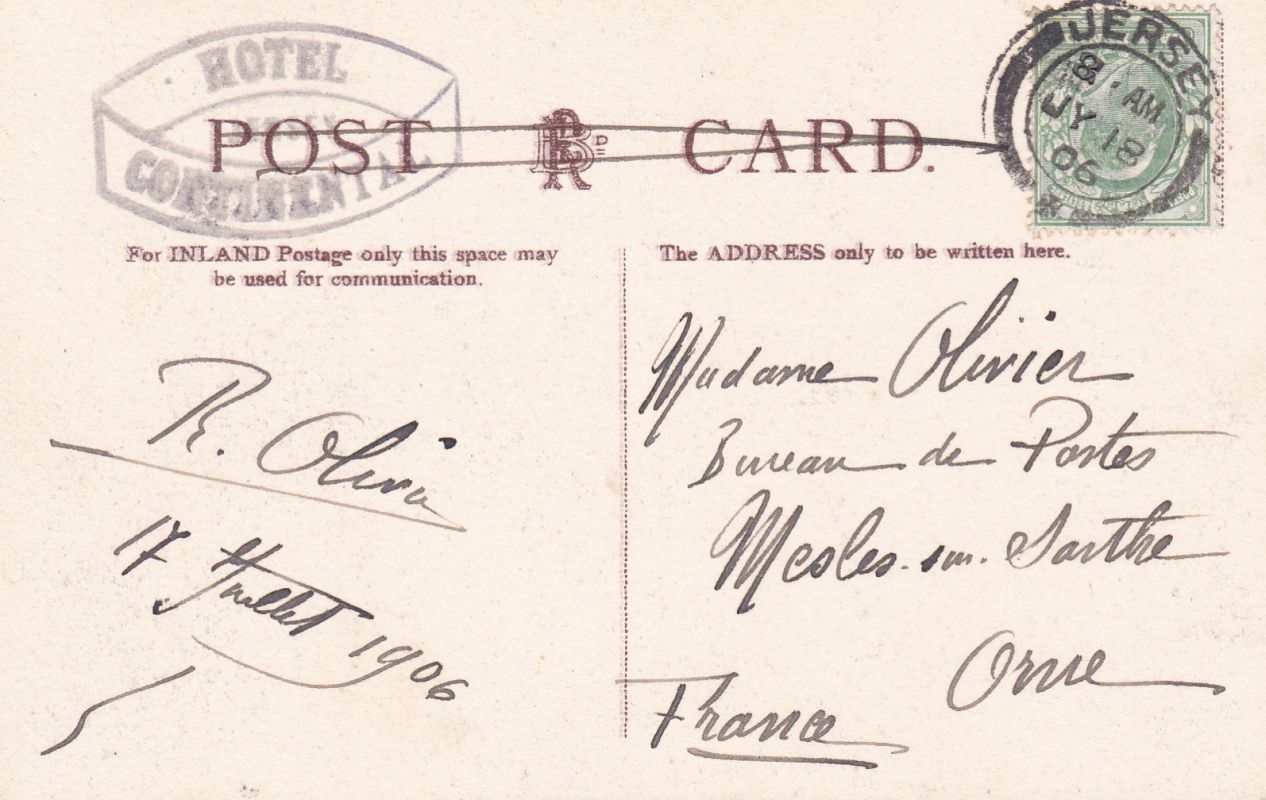 HOTEL
CONTINENTAL
POST CARD.
JERSEY
8 . AM
JY 18
06
For INLAND Postage only this space may
be used for communication.
The ADDRESS only to be written here.
R. Olivier
17 Juillet 1906
Madame Olivier
Bureau de Postes
Mesles-sur-Sarthe
Orne
France